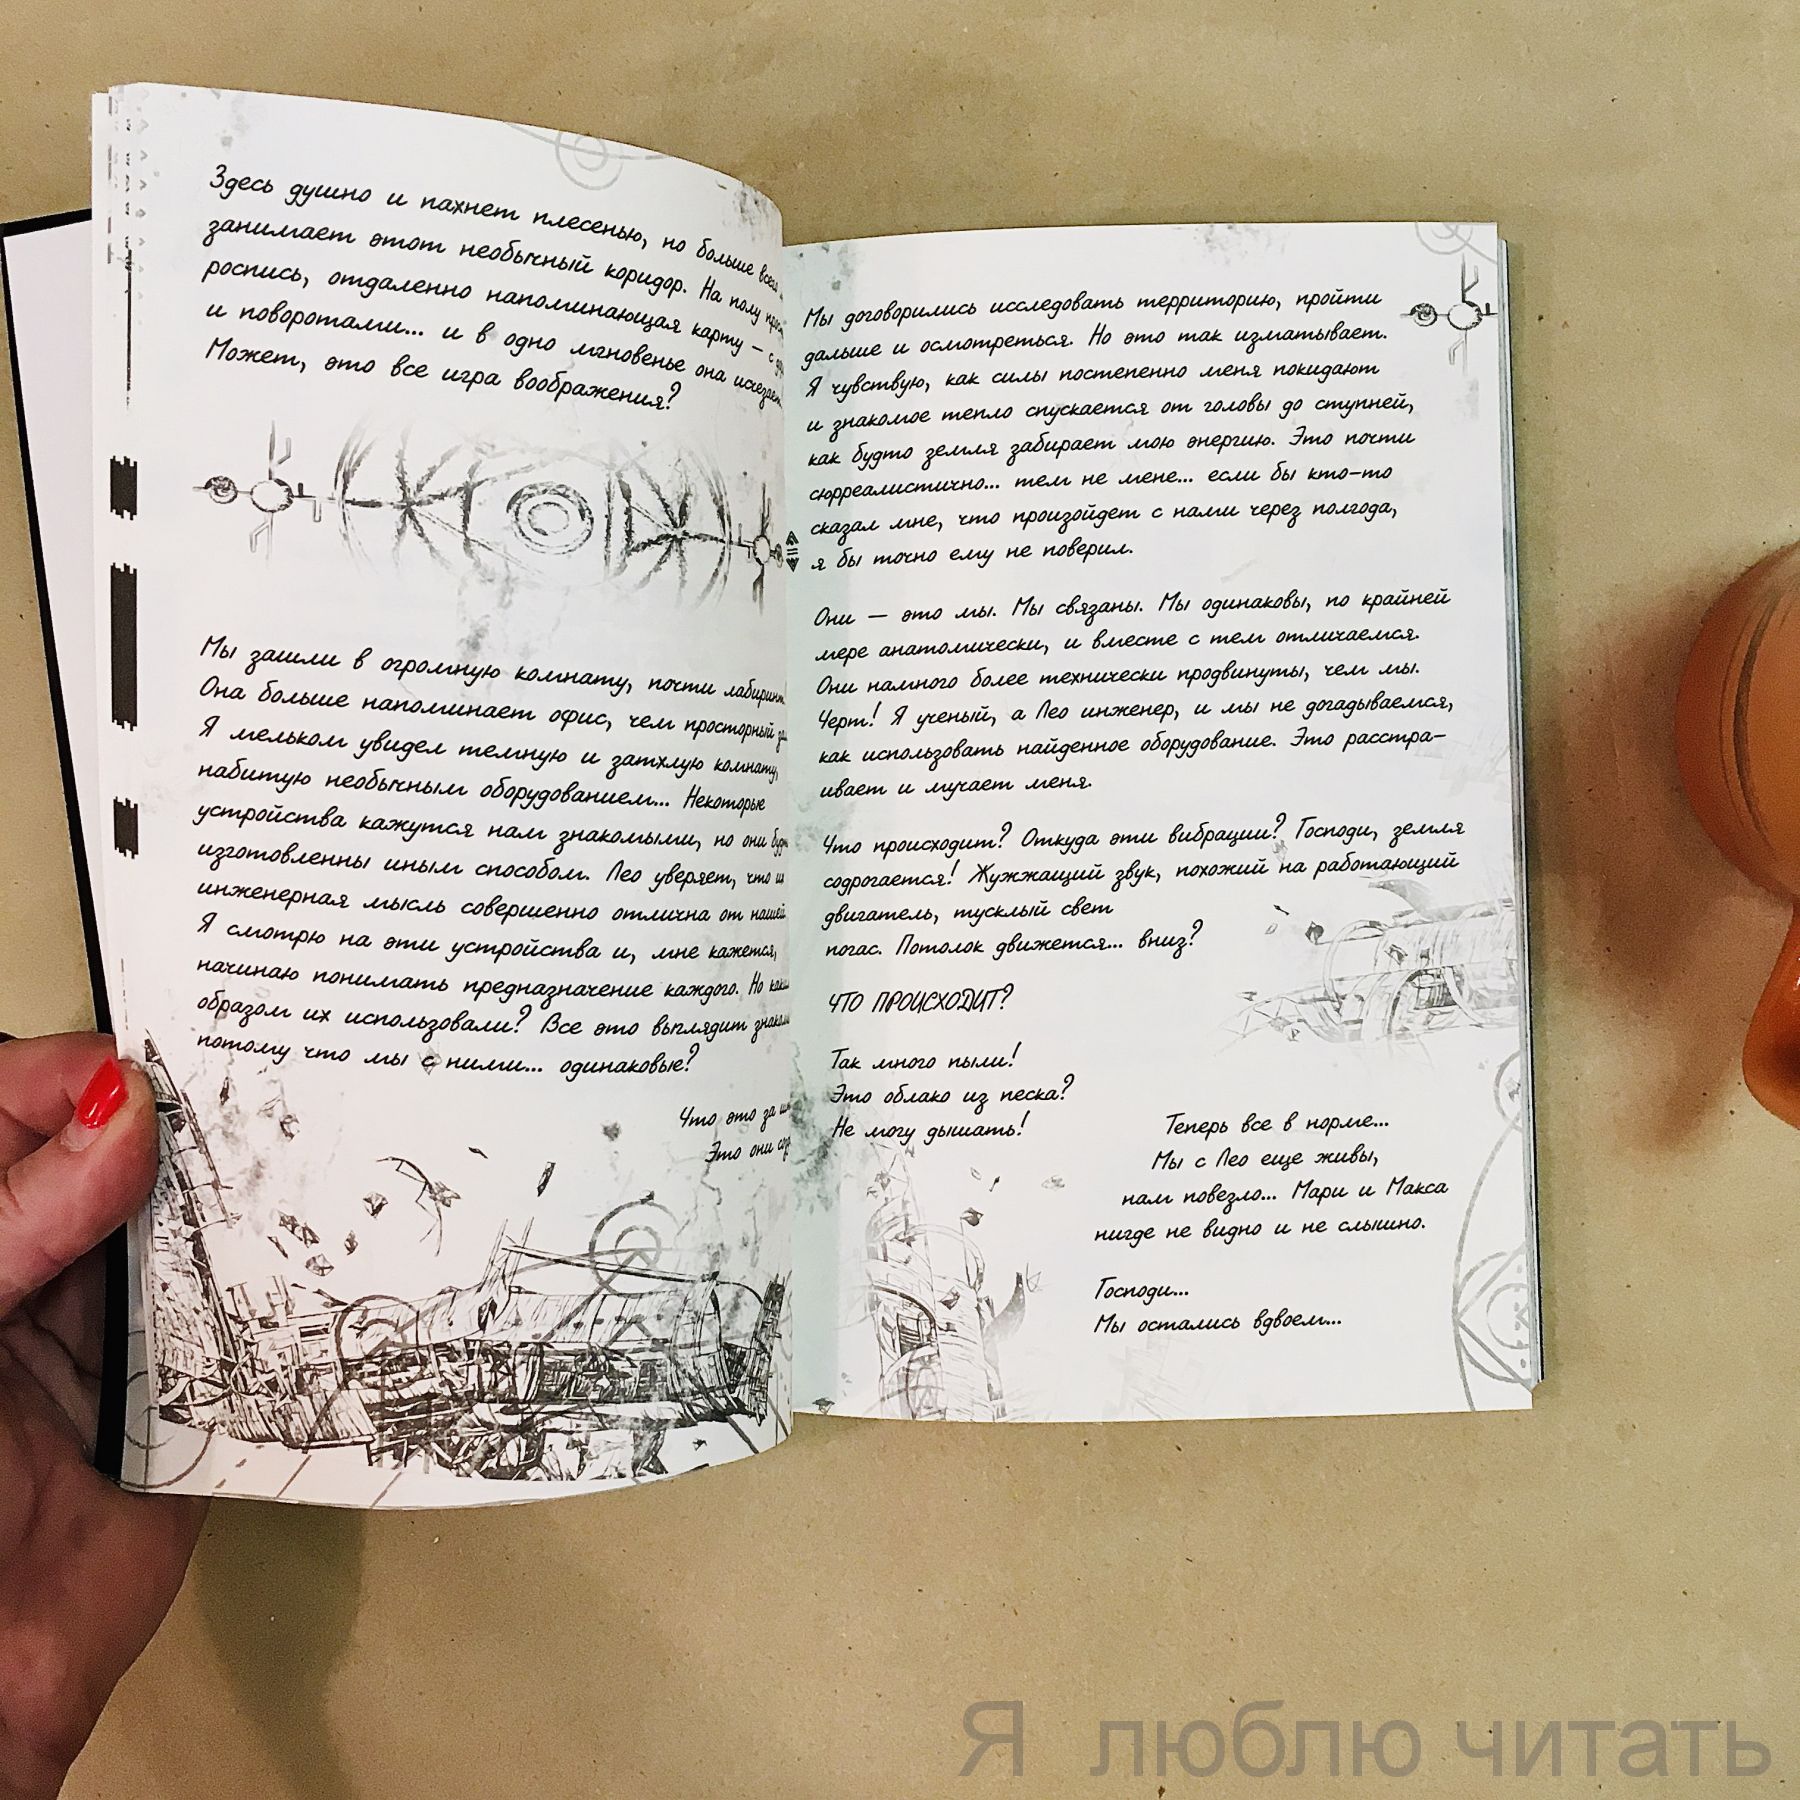 Здесь душно и пахнет плесенью, но больше всего
занимает этот необычный коридор. На полу
роспись, отдаленно напоминающая карту — с
и поворотами... и в одно мгновенье она исчезает.
Может, это все игра воображения?
Мы зашли в огромную комнату, почти лабиринт.
Она больше напоминает офис, чем просторный
Я мельком увидел темную и затхлую комнату,
набитую необычным оборудованием... Некоторые
устройства кажутся нам знакомыми, но они
изготовленны иным способом. Лео уверяет, что их
инженерная мысль совершенно отлична от нашей.
Я смотрю на эти устройства и, мне кажется,
начинаю понимать предназначение каждого. Но каким
образом их использовали? Все это выглядит
потому что мы с ними... одинаковые?
Что это за
Это они
Мы договорились исследовать территорию, пройти
дальше и осмотреться. Но это так изматывает.
Я чувствую, как силы постепенно меня покидают
и знакомое тепло спускается от головы до ступней,
как будто земля забирает мою энергию. Это почти
сюрреалистично... тем не мене... если бы кто-то
сказал мне, что произойдет с нами через полгода,
я бы точно ему не поверил.
Они — это мы. Мы связаны. Мы одинаковы, по крайней
мере анатомически, и вместе с тем отличаемся.
Они намного более технически продвинуты, чем мы.
Черт! Я ученый, а Лео инженер, и мы не догадываемся,
как использовать найденное оборудование. Это расстра-
ивает и мучает меня.
Что происходит? Откуда эти вибрации? Господи, земля
содрогается! Жужжащий звук, похожий на работающий
двигатель, тусклый свет
погас. Потолок движется... вниз?
ЧТО ПРОИСХОДИТ?
Так много пыли!
Это облако из песка?
Не могу дышать!
Теперь все в норме...
Мы с Лео еще живы,
нам повезло... Мари и Макса
нигде не видно и не слышно.
Господи...
Мы остались вдвоем...
Я люблю читать